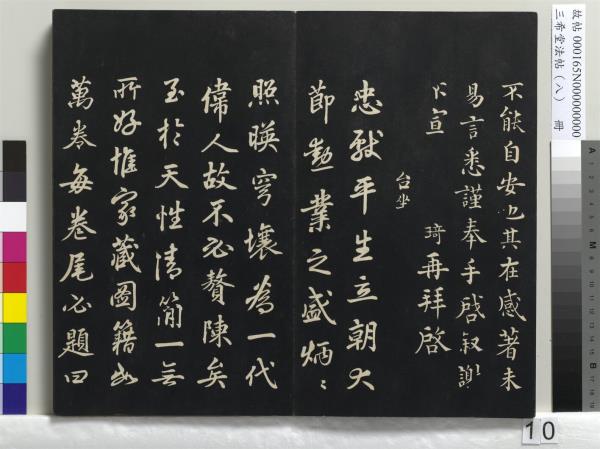 不能自安也其在感著未
易言悉謹奉手啓叙謝
不宣 琦再拜啓
台坐
忠獻平生立朝大
節勳業之盛炳〻
照暎穹壤為一代
偉人故不必贅陳矣
至於天性清簡一無
所好惟家藏圖籍如
萬卷每卷尾必題曰
故帖 000165N000000000
三希堂法帖(八) 冊
10